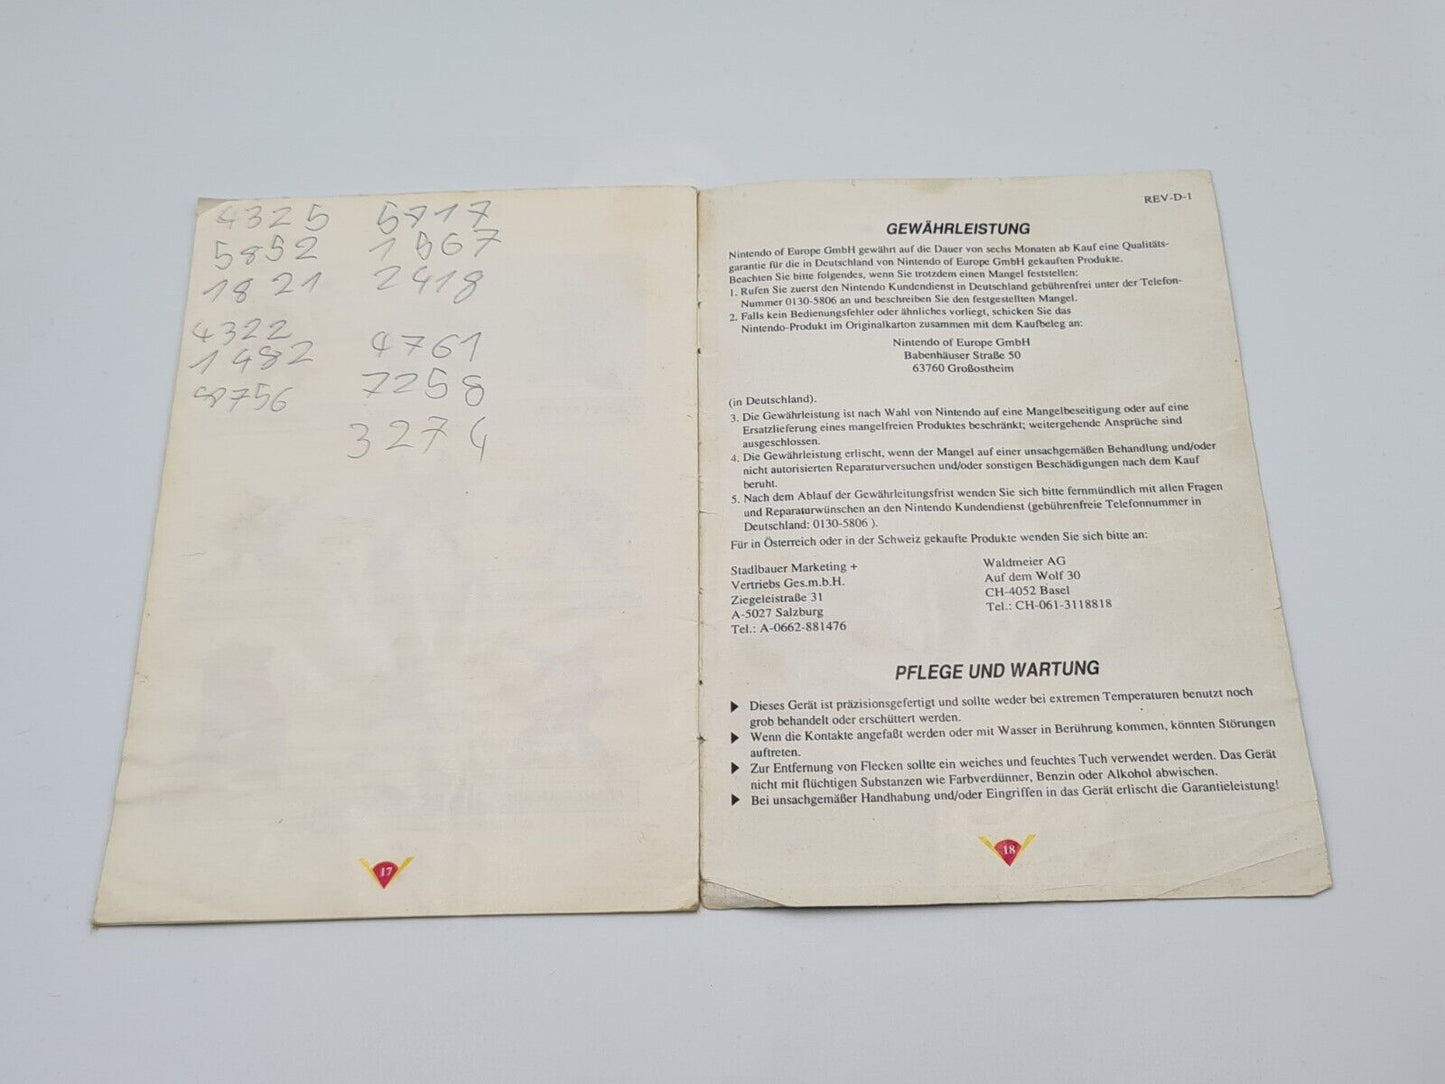 4325
5852
1821
4322
1482
8756
5717
1567
2418
4761
7258
3274
17
REV-D-1
GEWÄHRLEISTUNG
Nintendo of Europe GmbH gewährt auf die Dauer von sechs Monaten ab Kauf eine Qualitäts-
garantie für die in Deutschland von Nintendo of Europe GmbH gekauften Produkte.
Beachten Sie bitte folgendes, wenn Sie trotzdem einen Mangel feststellen:
1. Rufen Sie zuerst den Nintendo Kundendienst in Deutschland gebührenfrei unter der Telefon-
Nummer 0130-5806 an und beschreiben Sie den festgestellten Mangel.
2. Falls kein Bedienungsfehler oder ähnliches vorliegt, schicken Sie das
Nintendo-Produkt im Originalkarton zusammen mit dem Kaufbeleg an:
Nintendo of Europe GmbH
Babenhäuser Straße 50
63760 Großostheim
(in Deutschland).
3. Die Gewährleistung ist nach Wahl von Nintendo auf eine Mangelbeseitigung oder auf eine
Ersatzlieferung eines mangelfreien Produktes beschränkt; weitergehende Ansprüche sind
ausgeschlossen.
4. Die Gewährleistung erlischt, wenn der Mangel auf einer unsachgemäßen Behandlung und/oder
nicht autorisierten Reparaturversuchen und/oder sonstigen Beschädigungen nach dem Kauf
beruht.
5. Nach dem Ablauf der Gewährleitungsfrist wenden Sie sich bitte fernmündlich mit allen Fragen
und Reparaturwünschen an den Nintendo Kundendienst (gebührenfreie Telefonnummer in
Deutschland: 0130-5806 ).
Für in Österreich oder in der Schweiz gekaufte Produkte wenden Sie sich bitte an:
Stadlbauer Marketing +
Vertriebs Ges.m.b.H.
Ziegeleistraße 31
A-5027 Salzburg
Tel.: A-0662-881476
Waldmeier AG
Auf dem Wolf 30
CH-4052 Basel
Tel.: CH-061-3118818
PFLEGE UND WARTUNG
Dieses Gerät ist präzisionsgefertigt und sollte weder bei extremen Temperaturen benutzt noch
grob behandelt oder erschüttert werden.
Wenn die Kontakte angefaßt werden oder mit Wasser in Berührung kommen, könnten Störungen
auftreten.
Zur Entfernung von Flecken sollte ein weiches und feuchtes Tuch verwendet werden. Das Gerät
nicht mit flüchtigen Substanzen wie Farbverdünner, Benzin oder Alkohol abwischen.
Bei unsachgemäßer Handhabung und/oder Eingriffen in das Gerät erlischt die Garantieleistung!
18